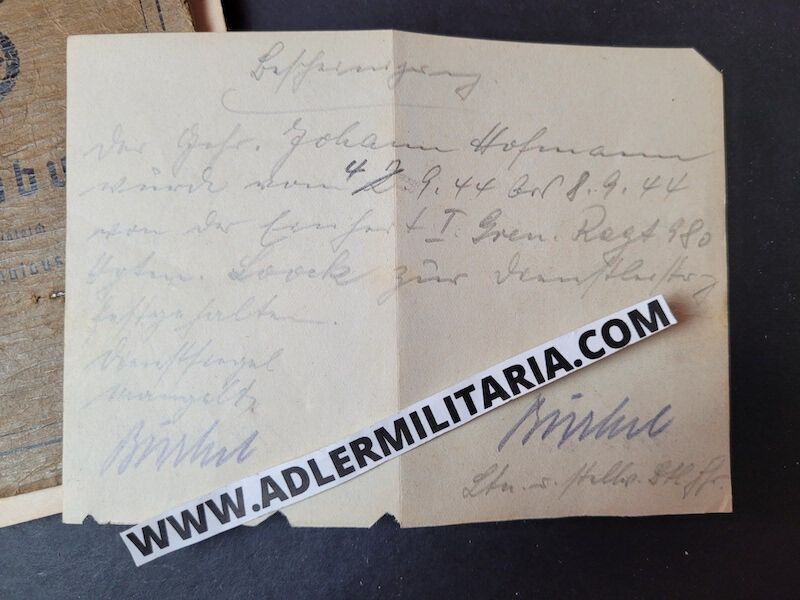 Bescheinigung.
Der Gefr. Johann Hofmann
wurde vom 4.9.44 bis 8.9.44
von der Einheit I. Gren. Regt 980
Hptm. Loock zur Dienstleistg
festgehalten.
Dienstsiegel
mangelt.
Ltn. u. stellv. Btl. Fhr.
WWW.ADLERMILITARIA.COM